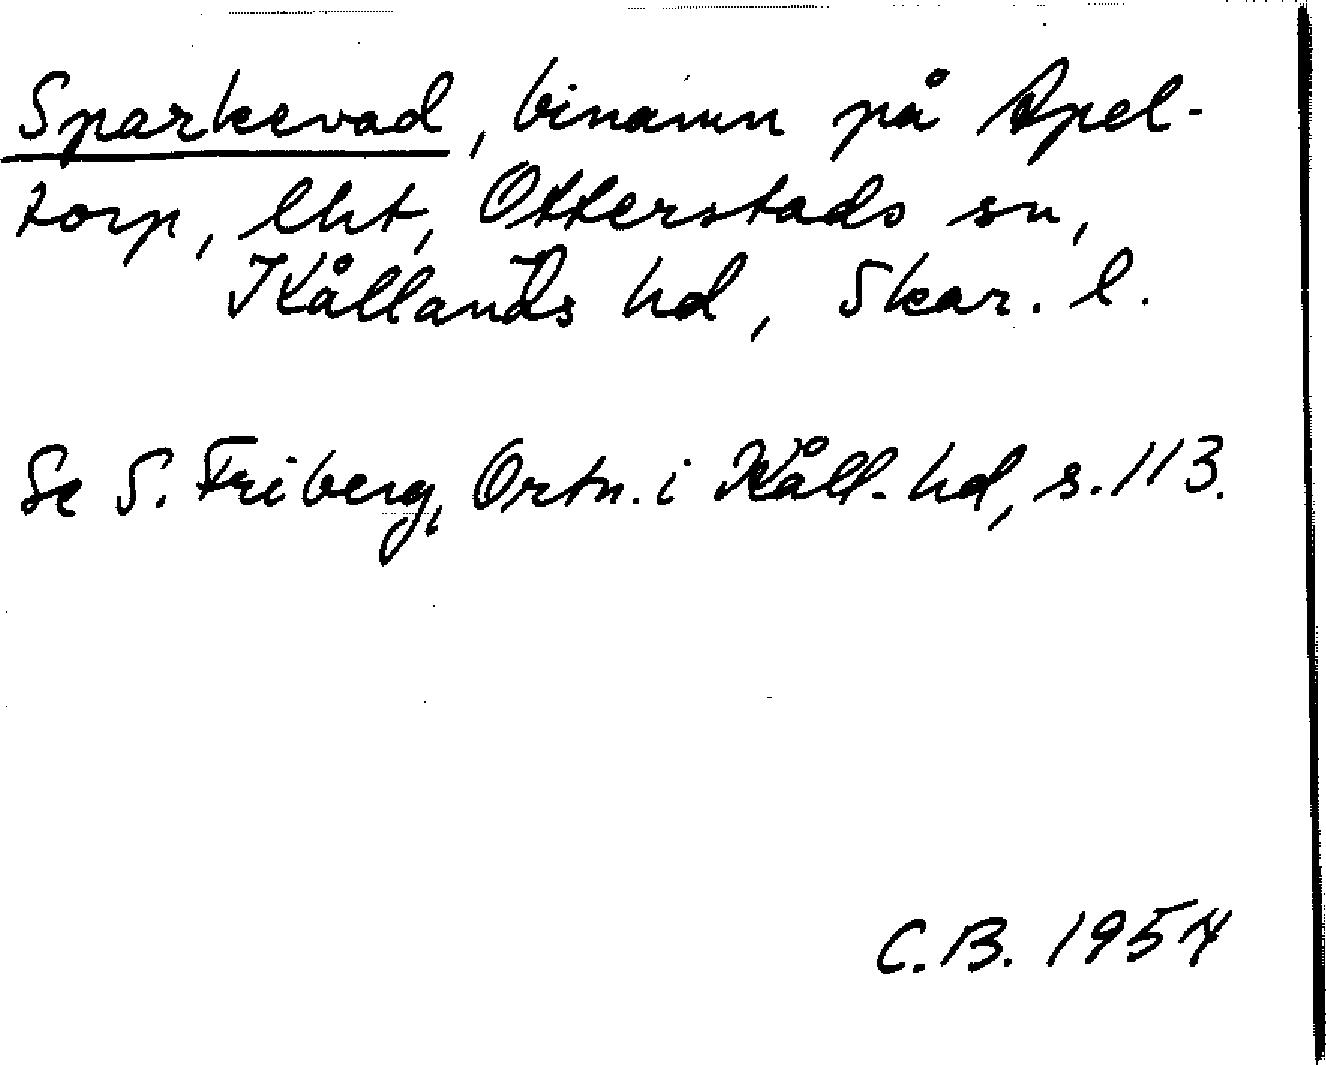 Sparkevad, binamn på Apel-
torp, lht, Otterstads sn,
Kållands hd, Skar. l.
Se S. Friberg, Ortn. i Kåll. hd, s. 113.
C.B. 1954